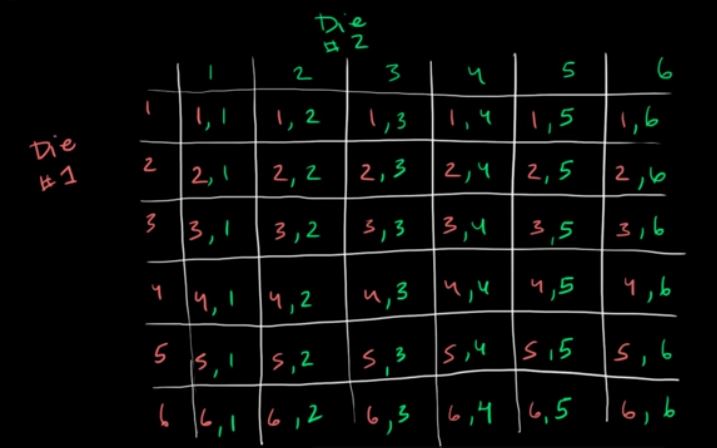 Die
#2
1 2 3 4 5 6
1 1,1 1,2 1,3 1,4 1,5 1,6
Die
#1
2 2,1 2,2 2,3 2,4 2,5 2,6
3 3,1 3,2 3,3 3,4 3,5 3,6
4 4,1 4,2 4,3 4,4 4,5 4,6
5 5,1 5,2 5,3 5,4 5,5 5,6
6 6,1 6,2 6,3 6,4 6,5 6,6